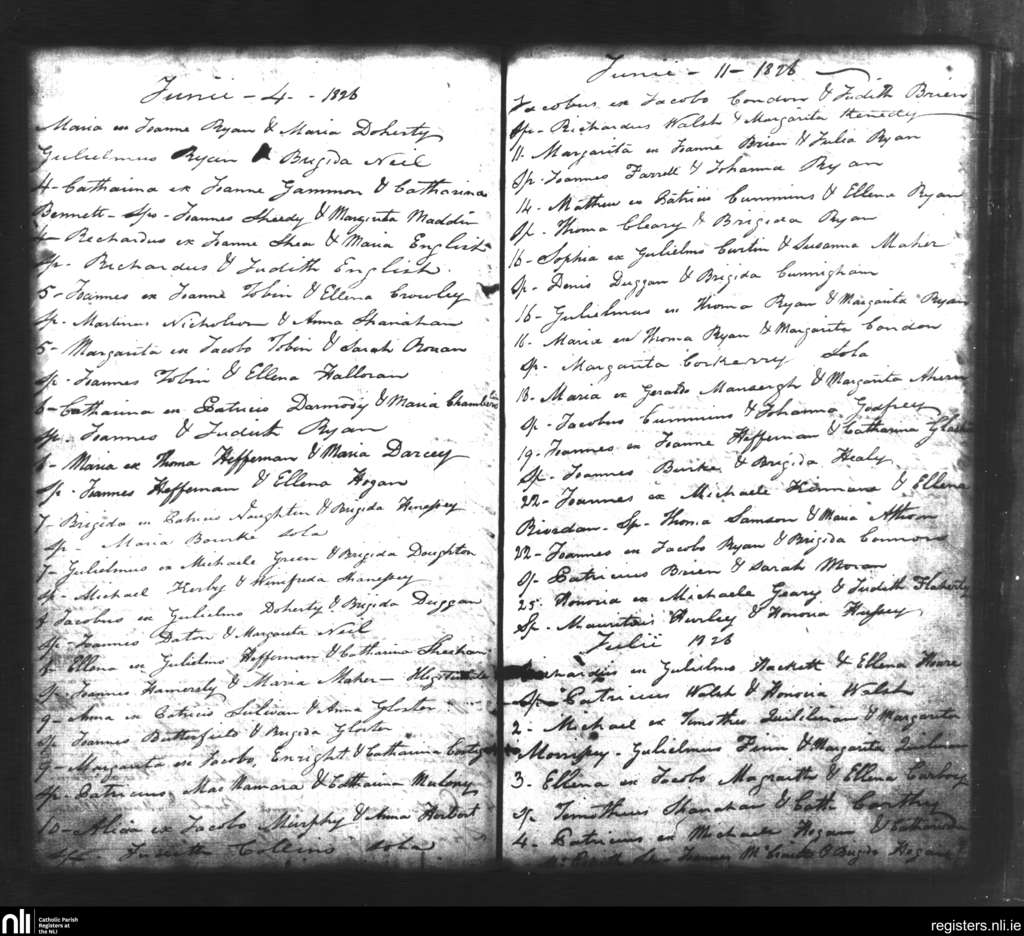 Junii - 4 - 1826
Maria ex Joanne Ryan & Maria Doherty
Gulielmus Ryan & Brigida Neil
4 - Catharina ex Joanne Gammon & Catharina
Bennett - Sps - Joannes Sheedy & Margarita Maddin
4 - Richardus ex Joanne Shea & Maria English
Sp. Richardus & Judith English.
5 - Joannes ex Joanne Tobin & Ellena Crowley
Sp. Martinus Nicholson & Anna Shanahan
5 - Margarita ex Jacobo Tobin & Sarah
Sp - Joannes Tobin & Ellena Halloran
6 - Catharina ex Patricio Darmody & Maria
Sp. Joannes & Judith Ryan
6 - Maria ex Thoma Heffernan & Maria Darcey
Sp. Joannes Heffernan & Ellena Hogan
7 - Brigida ex Patricio Naughten & Brigida
Sp - Maria Bourke sola
7 - Gulielmus ex Michaele Green & Brigida Doughton
Sp - Michael Kerby & Winifreda
Jacobus ex Gulielmo Doherty & Brigida Duggan
Sp - Joannes Daton & Margarita Neil
Ellena ex Gulielmo Heffernan & Catharina Sheehan
Sp - Joannes Hamersly & Maria Maher -
9 - Anna ex Patricio Sulivan & Anna Gloster
Sp Joannes Butterfield & Brigida Gloster
9 - Margarita ex Jacobo Enright & Catharina
Sp - Patricius MacNamara & Catharina Malony
10 - Alicia ex Jacobo Murphy & Anna Herbert
Sp - Judith Collins sola
Junii - 11 - 1826
Jacobus ex Jacobo Condon & Judith Brien
Sp - Richardus Walsh & Margarita Kenedy
11. Margarita ex Joanne Brien & Julia Ryan
Sp. Joannes Farrell & Johanna Ryan
14. Mathew ex Patricio Cummins & Ellena Ryan
Sp. Thoma Cleary & Brigida Ryan
16 - Sophia ex Gulielmo Curtin & Susanna Maher
Sp - Denis Duggan & Brigida Cunnigham
16 - Gulielmus ex Thoma Ryan & Margarita Ryan
16. Maria ex Thoma Ryan & Margarita Condon
Sp. Margarita Corkerry Sola
18 - Maria ex Geraldo Mansergh & Margarita Ahern
Sp. Jacobus Cummins & Johanna Godfrey
19. Joannes ex Joanne Heffernan & Catharina
Sp - Joannes Burke & Brigida Healy
22 - Joannes ex Michaele & Ellena
Riordan - Sp - Thoma Samson & Maria
22 - Joannes ex Jacobo Ryan & Brigida Connors
Sp Patricius Brien & Sarah Moran
25. Honoria ex Michaele Geary & Judith Flaherty
Sp - Mauritius Hurley & Honoria Hussey
Julii 1826
ex Gulielmo Hackett & Ellena Hoare
Sp - Patricius Walsh & Honoria Walsh
2 - Michael ex Timotheo & Margarita
Gulielmus Finn & Margarita
3. Ellena ex Jacobo Magrath & Ellena
Sp Timotheus Shanahan & Cath. Carthy
4. Patricius ex Michaele Hogan & Catharina
Joannes & Brigida Hogan
nli
Catholic Parish
Registers at
the NLI
registers.nli.ie